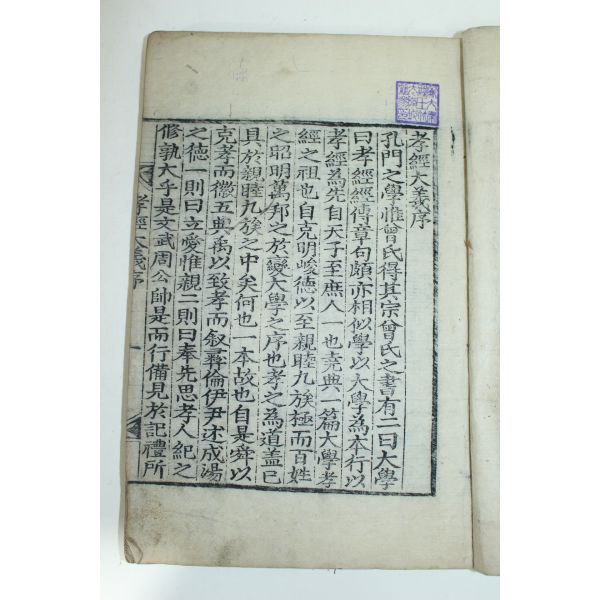 孝經大義序
孔門之學惟曾氏得其宗曾氏之書有二曰大學
曰孝經經傳章句頗亦相似學以大學為本行以
孝經為先自天子至庶人一也堯典一篇大學孝
經之祖也自克明峻德以至親睦九族極而百姓
之昭明萬邦之於變大學之序也孝之為道盖已
具於親睦九族之中矣何也一本故也自是舜以
克孝而徽五典禹以致孝而敍彛倫伊尹述成湯
之德一則曰立愛惟親二則曰奉先思孝人紀之
修孰大乎是文武周公帥是而行備見於記禮所
孝經大義序